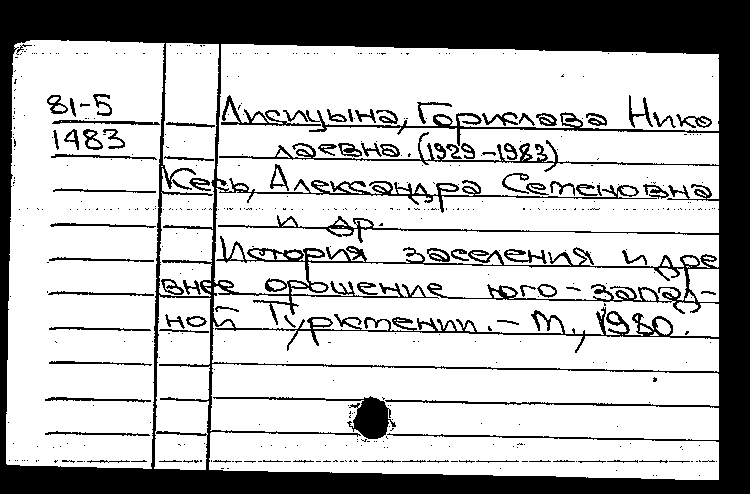 81-5
1483
Лисицына, Горислава Нико
лаевна. (1929-1983)
Кесь, Александра Семеновна
и др.
История заселения и дре
внее орошение юго-запад-
ной Туркмении. - М., 1980.